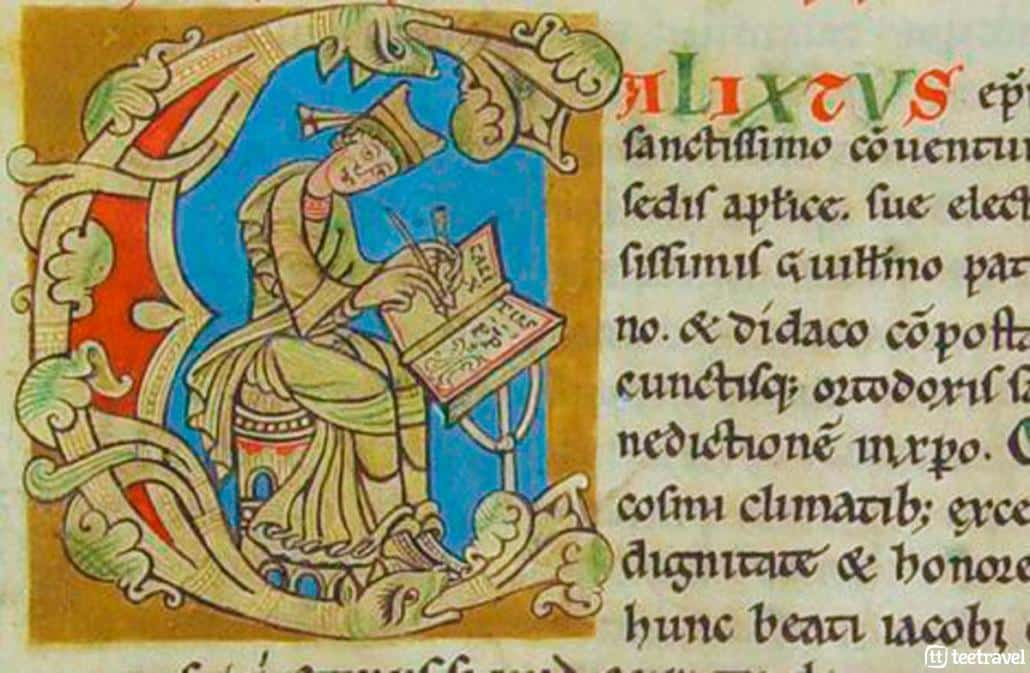 CALIXTVS ep̃
sanctissimo cõuentui
sedis apl̃ice. sue elect
sissimis Guill̃mo pat
no. & didaco cõpost
cunctisq; ortodoxis
nedictionẽ in xp̃o.
cosmi climatib; exce
dignitate & honore
hunc beati iacobi
CALI
XTUS
teetravel